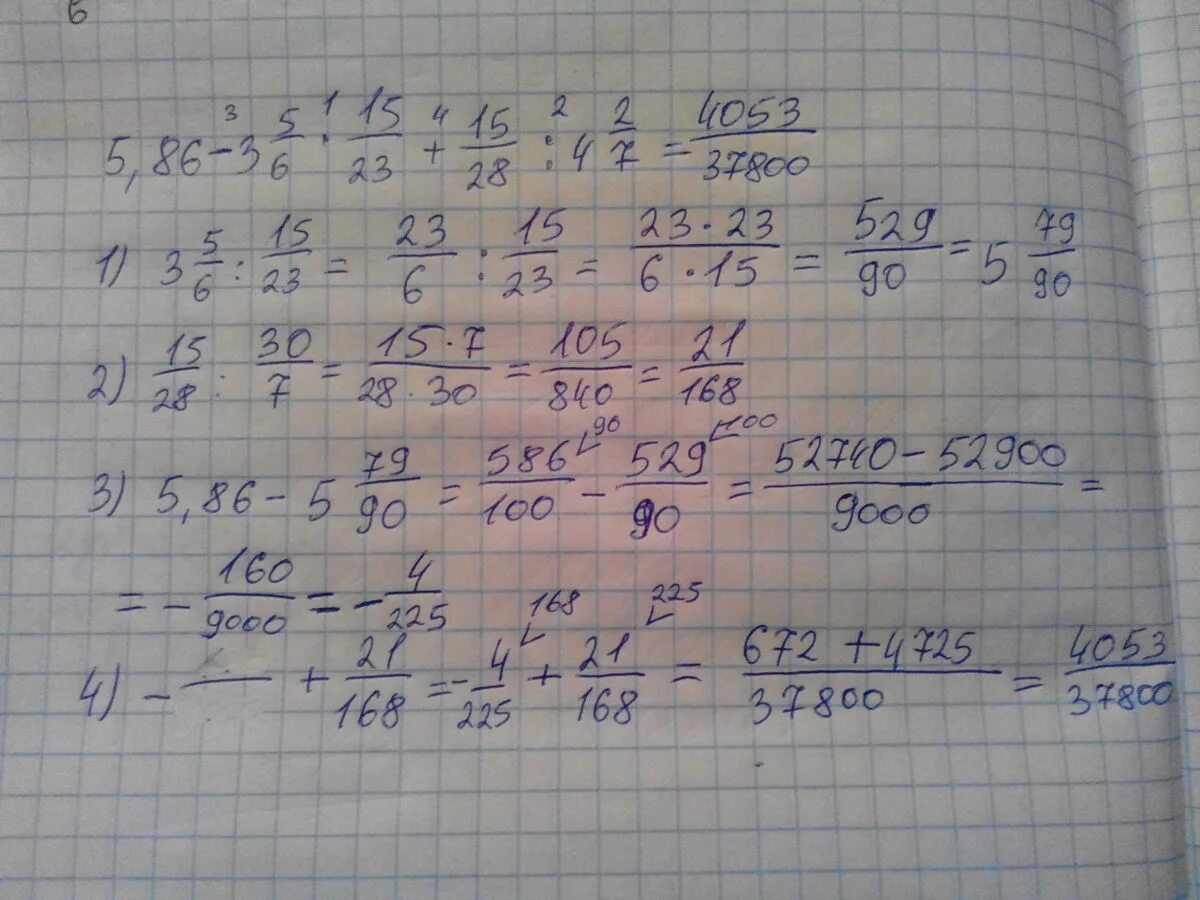 6
5,86 - 3 5/6 :¹ 15/23 +⁴ 15/28 :² 4 2/7 = 4053/37800
1) 3 5/6 : 15/23 = 23/6 : 15/23 = 23·23/6·15 = 529/90 = 5 79/90
2) 15/28 : 30/7 = 15·7/28·30 = 105/840 = 21/168
3) 5,86 - 5 79/90 = 586/100 ⁹⁰ - 529/90 ¹⁰⁰ = 52740 - 52900/9000 =
= - 160/9000 = - 4/225
4) - + 21/168 = - 4/225 ¹⁶⁸ + 21/168 ²²⁵ = 672 + 4725/37800 = 4053/37800